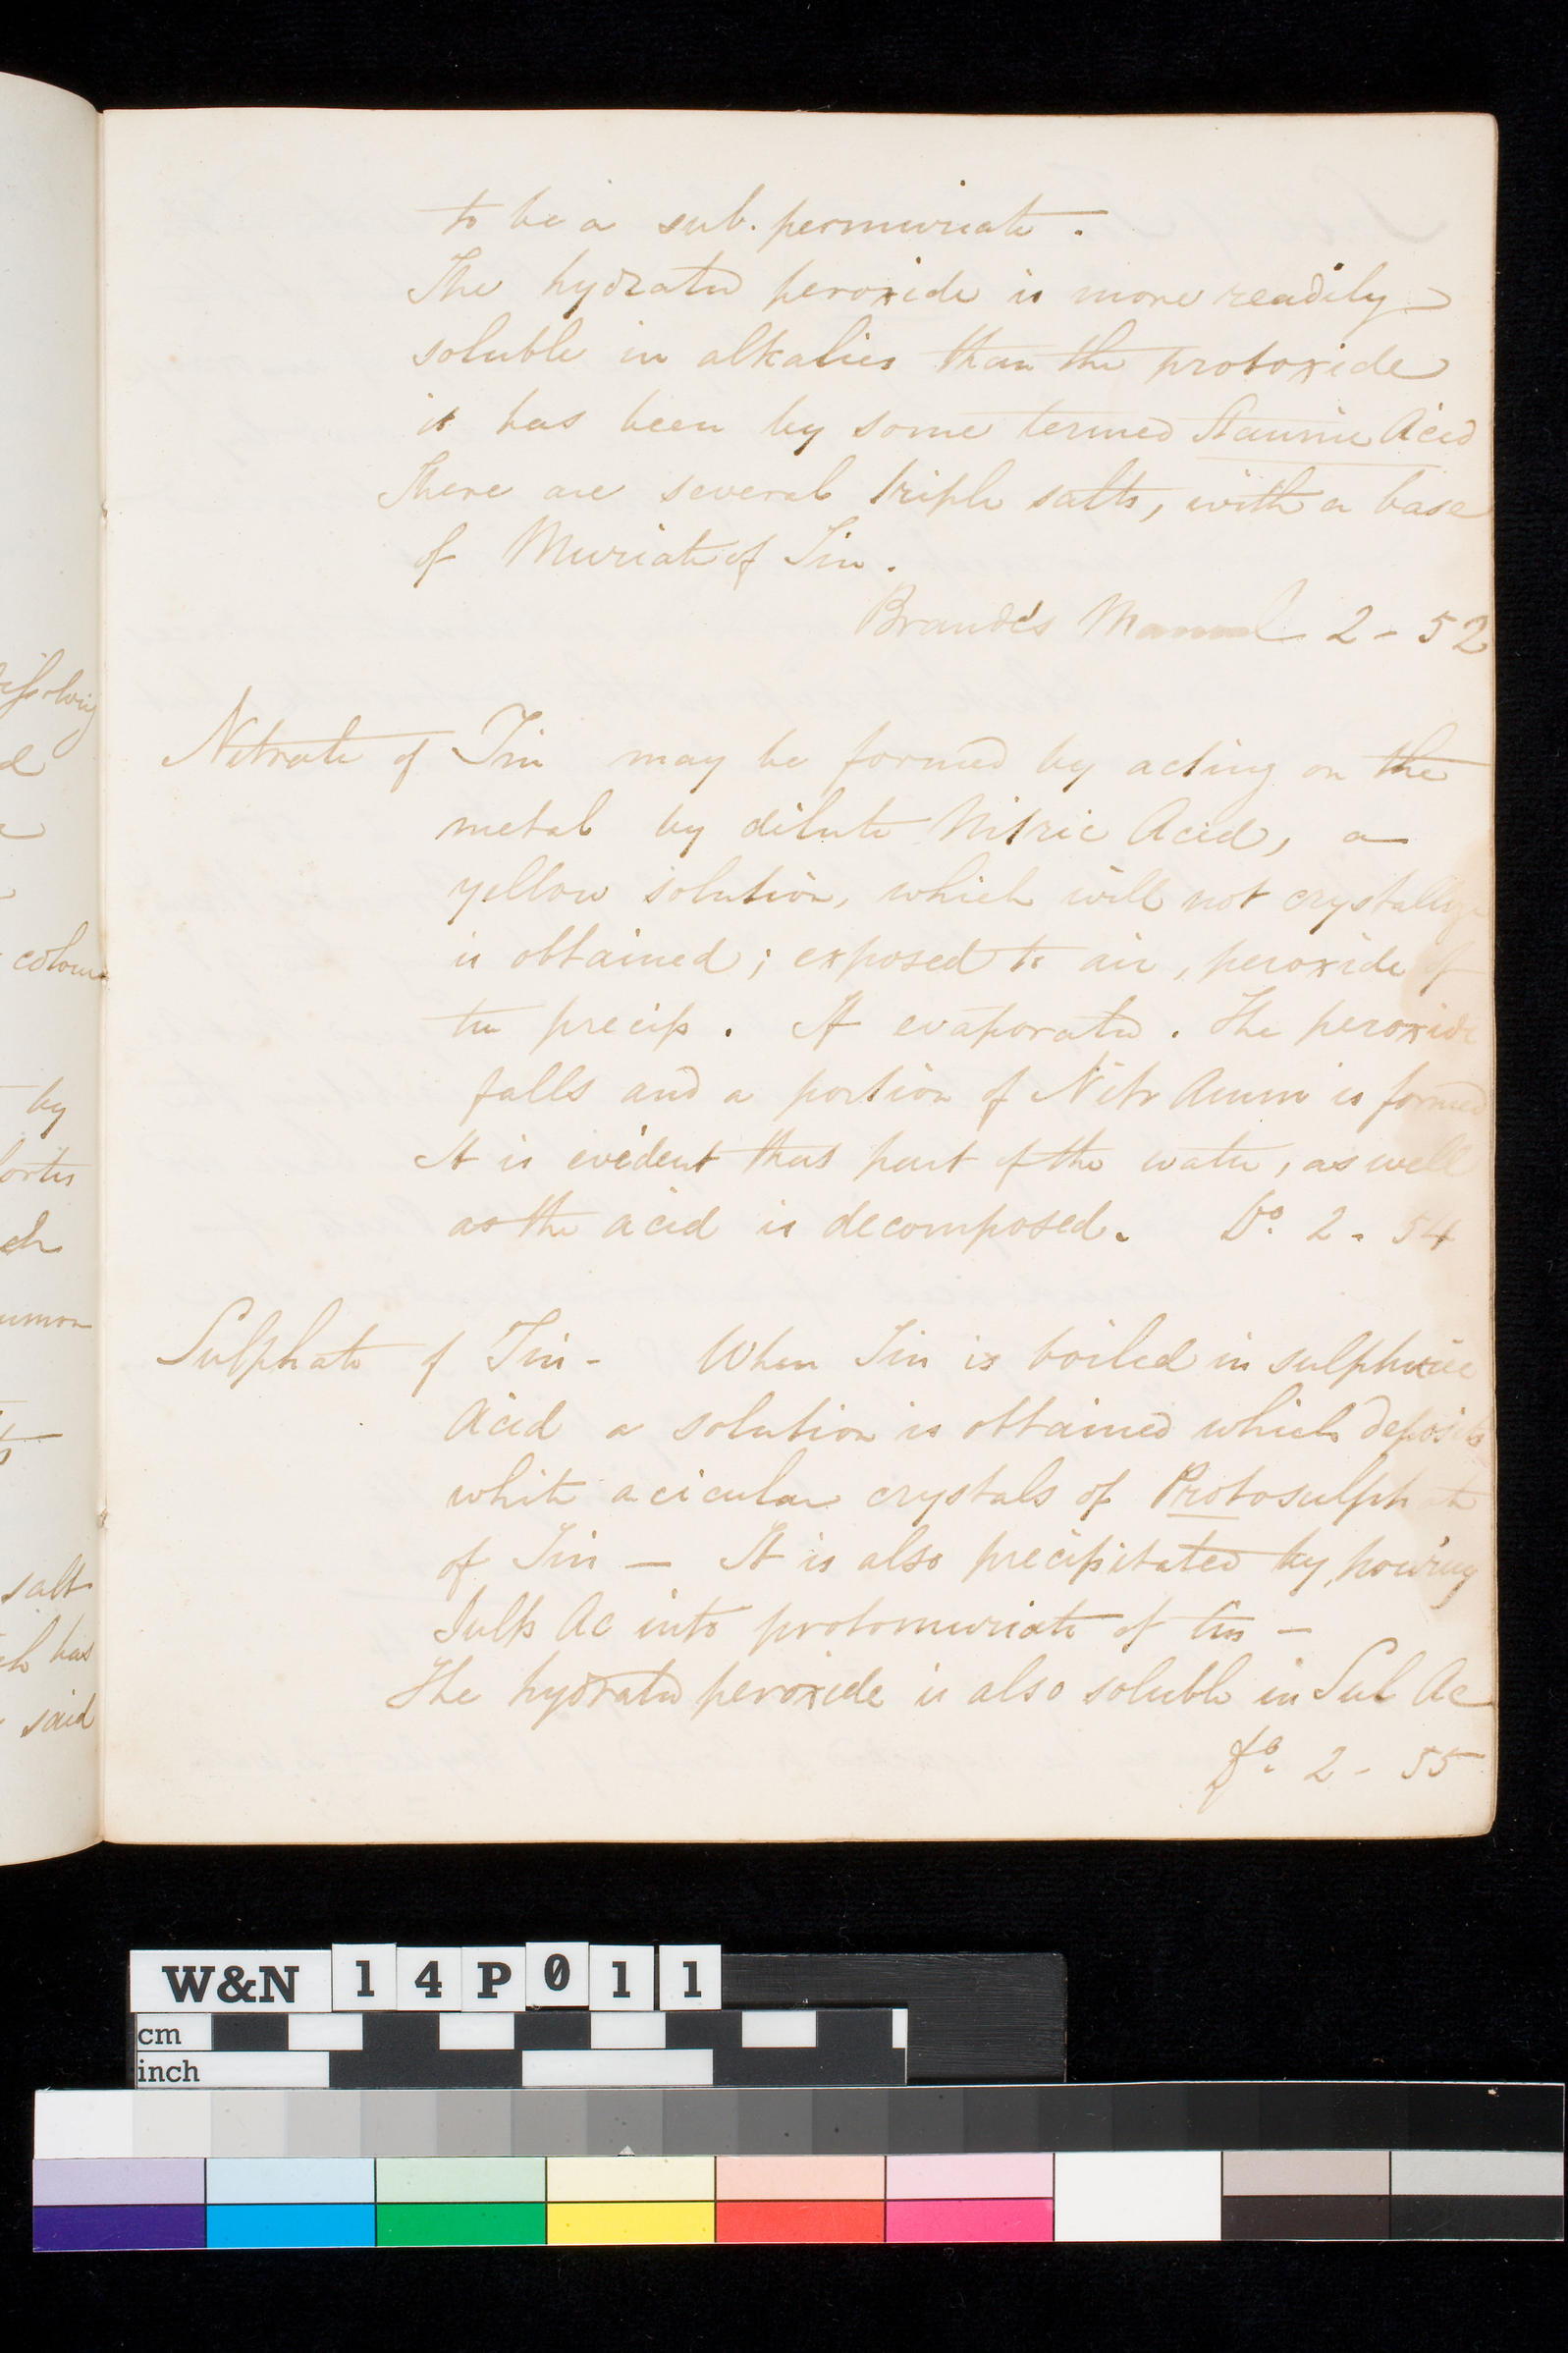 to be a sub. permuriate.
The hydrated peroxide is more readily
soluble in alkalies than the protoxide
it has been by some termed Stannic Acid
There are several triple salts, with a base
of Muriate of Tin.
Brande's Manual 2 - 52
Nitrate of Tin may be formed by acting on the
metal by dilute Nitric Acid, a
yellow solution, which will not crystallize
is obtained; exposed to air, peroxide of
tin precip. If evaporated. The peroxide
falls and a portion of Nitr Amm is formed
It is evident that part of the water, as well
as the acid is decomposed. Do. 2 - 54
Sulphate of Tin - When Tin is boiled in sulphuric
Acid a solution is obtained which deposits
white acicular crystals of Protosulphate
of Tin — It is also precipitated by pouring
Sulp Ac into protomuriate of tin —
The hydrated peroxide is also soluble in Sul Ac
Do. 2 - 55
dissolving
colour
by
salt
has
said
W&N 14P011
cm
inch